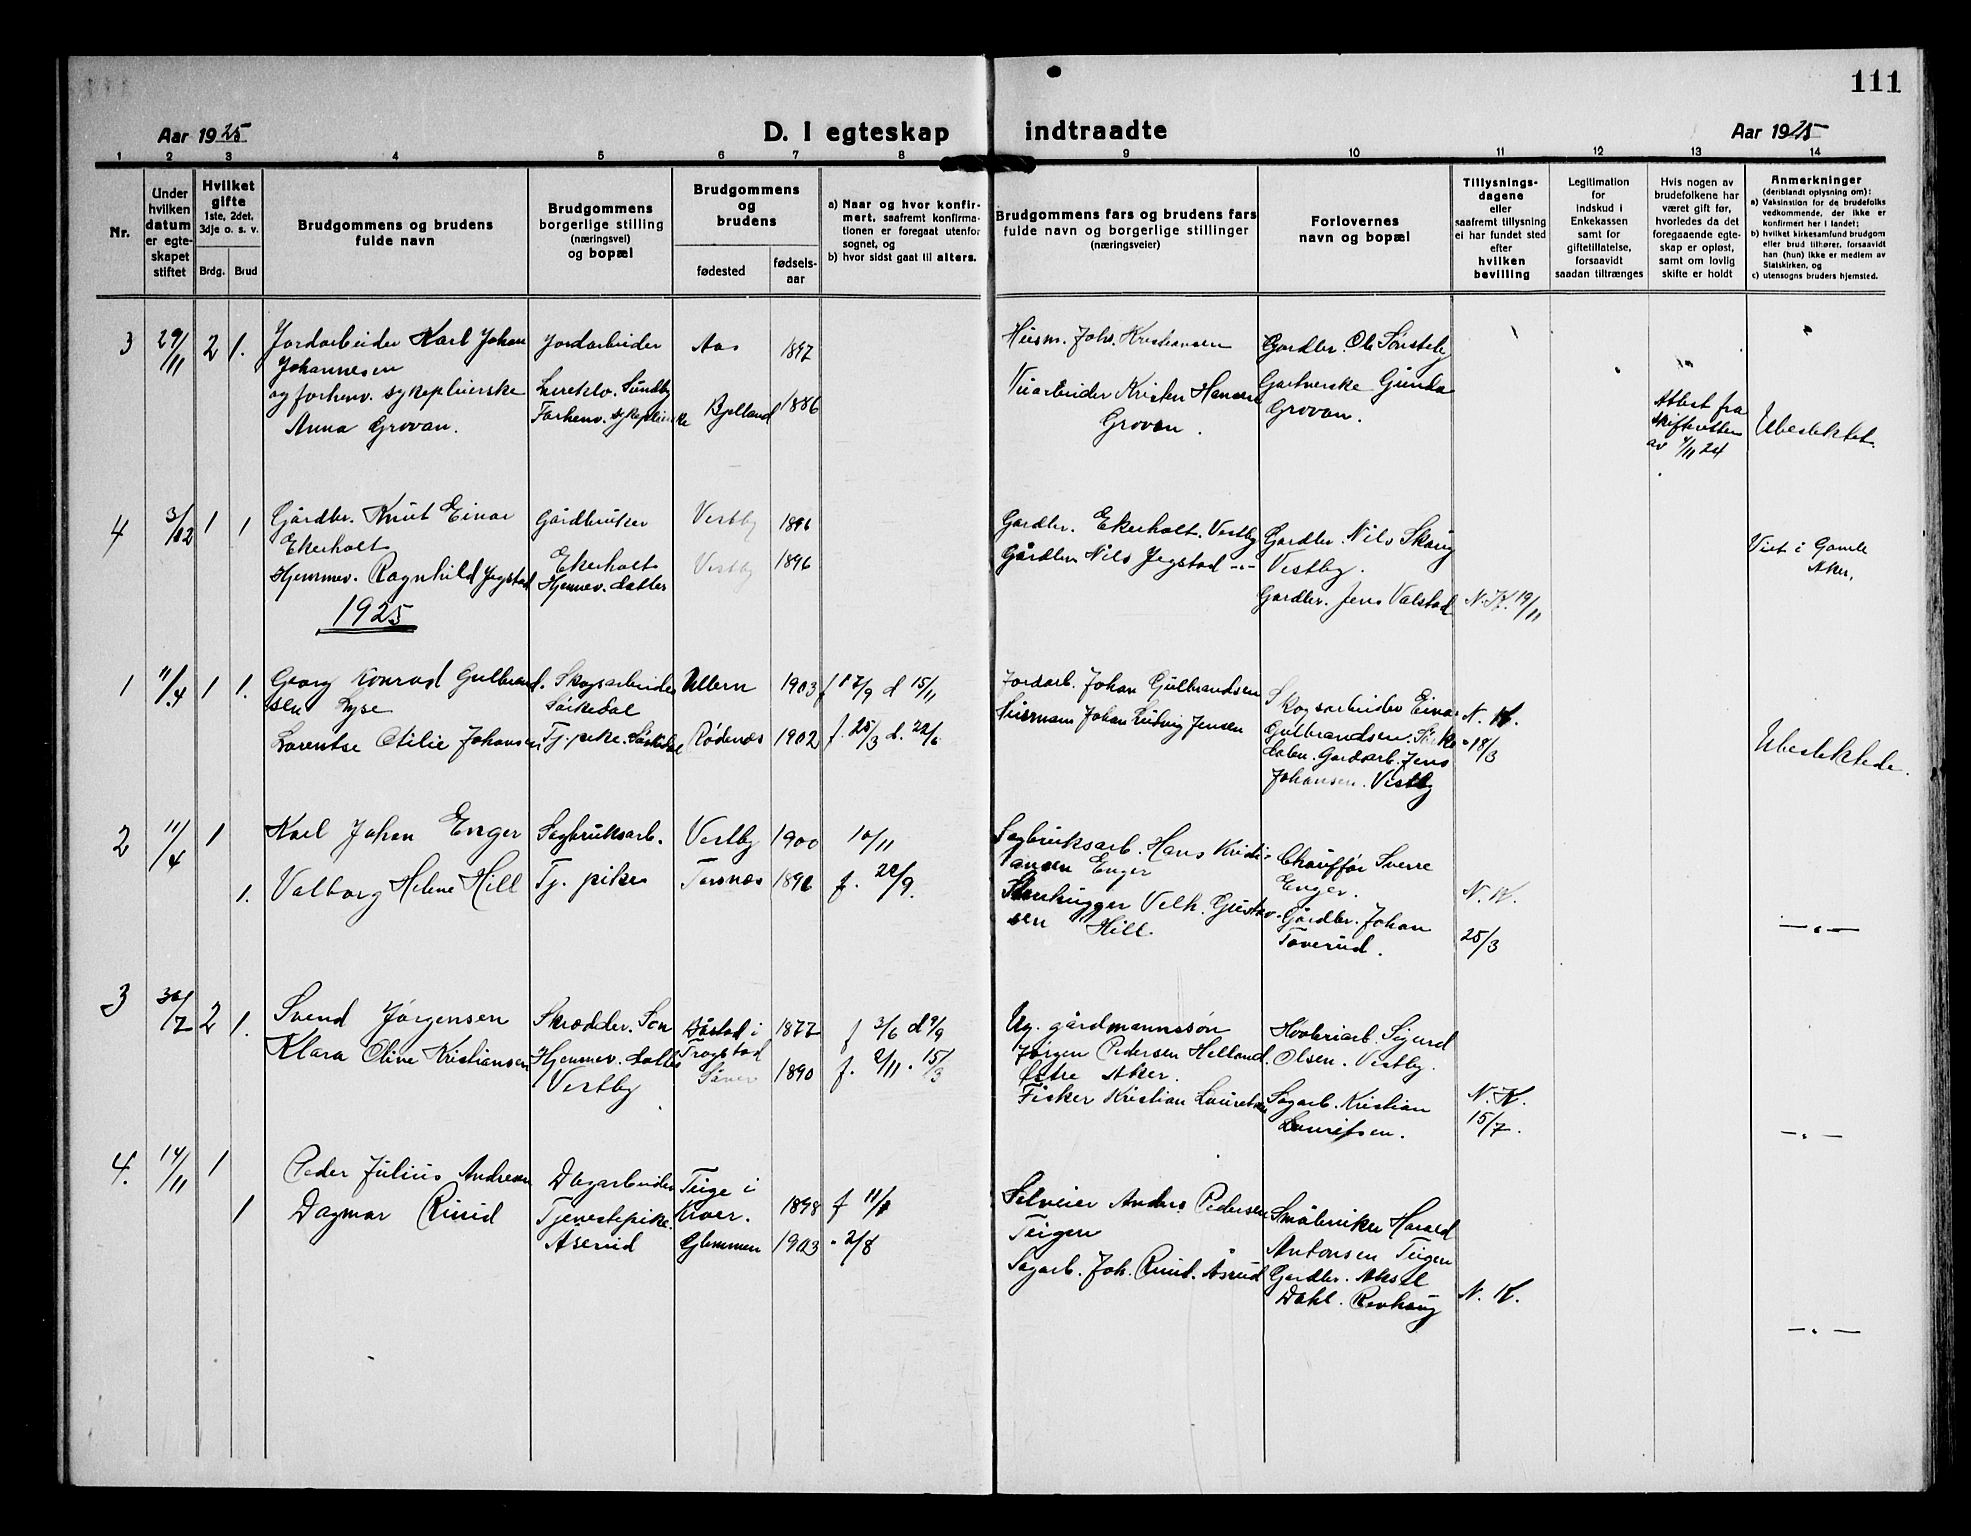 111
Aar 1925
D. I egteskap
indtraadte
Aar 1925
1 2 3 4 5 6 7 8 9 10 11 12 13 14
Nr.
Under hvilken datum er egteskapet stiftet
Hvilket gifte
1ste, 2det, 3dje o. s. v.
Brdg. Brud
Brudgommens og brudens fulde navn
Brudgommens borgerlige stilling (næringsvei) og bopæl
Brudgommens og brudens
fødested
fødselsaar
a) Naar og hvor konfirmert, saafremt konfirmationen er foregaat utenfor sognet, og
b) hvor sidst gaat til alters.
Brudgommens fars og brudens fars fulde navn og borgerlige stillinger (næringsveier)
Forlovernes navn og bopæl
Tillysningsdagene eller saafremt tillysning ei har fundet sted efter hvilken bevilling
Legitimation for Indskud i Enkekassen samt for giftetillatelse, forsaavidt saadan tiltrænges
Hvis nogen av brudefolkene har været gift før, hvorledes da det foregaaende egteskap er opløst, samt om lovlig skifte er holdt
Anmerkninger
(deriblandt oplysning om):
a) Vaksinstion for de brudefolks vedkommende, der ikke er konfirmert her i landet;
b) hvilket kirkesamfund brudgom eller brud tilhører, forsaavidt han (hun) ikke er medlem av Statskirken, og
c) utensogns bruders hjemsted.
3 29/11 2 1. Jordarbeider Karl Johan Jordarbeider Aas 1897 Husm. Johs. Kristiansen Gardbr. Ole Sørsteby
Johannesen
og forhenv. sykepleierske Sundby Bjelland 1886 Veiarbeider Kristen Hansen Gartnerske Gunda
Anna Grovan. Forhenv. sykepleierske Grovan. Grovan. Attest fra skifteretten av 4/11 24 Ubeslektet.
4 3/12 1 1 Gårdbr. Knut Einar Gårdbruker Vestby 1896 Gardbr. Ekerholt. Vestby Gardbr. Nils Skaug
Ekerholt Ekerholt Vestby 1896 Gårdbr Nils Jegstad -"- Vestby. Viet i Gamle Aker.
Hjemmev. Ragnhild Jegstad Hjemmev. datter Gardbr. Jens Valstad N. K. 19/11
1925
1 11/4 1 1. Georg Konrad Gulbrand- Skogsarbeider Ullern 1903 f 17/9 d 15/11 Jordarb. Johan Gulbrandsen Skogsarbeider Einar N. K.
sen Lyse Sørkedal
Lorentse Otilie Johansen Tj. pike. Rødenæs 1902 f. 25/3 d. 22/6 Johan Ludvig Jensen Gulbrandsen. Sørke- 18/3
dalen. Gardarb. Jens Ubeslektede.
Johansen. Vestby
2 11/4 1 Karl Johan Enger Sagbruksarb. Vestby 1900 10/11 Sagbruksarb. Hans Kristi- Chauffør Sverre
ansen Enger Enger.
1. Valborg Helene Hill Tj. pike Torsnæs f. 22/9. Stenhugger Vilh. Gustav- Gårdbr. Johan N. K.
sen Hill. Taverud. 25/3 -"-
3 30/7 2 1. Svend Jørgensen Skrædder. Son Båstad i 1877 f 3/6 d 9/9 Ug. gårdmannssøn Sigurd
Klara Oline Kristiansen Hjemmev. datter Trøgstad 1890 f. 2/11. 15/3 Jørgen Pedersen Helland. Olsen. Vestby.
Vestby Østre Aker.
Fisker Kristian Lauretsen Sagarb. Kristian N. K.
Lauritsen. 15/7. -"-
4. 14/11 1 Peder Julius Andresen Dagarbeider Teige i
1 Dagmar Ruud Tjenestepike. Kroer. 1898 f Selveier Anders Pedersen Småbruker Harald
Aserud Glemmen 1903 - 2/8 Teigen Antonsen Teigen
Sagarb. Joh. Ruud. Åsrud Gardbr. Aksel
Dahl. Revhaug N. K. -"-